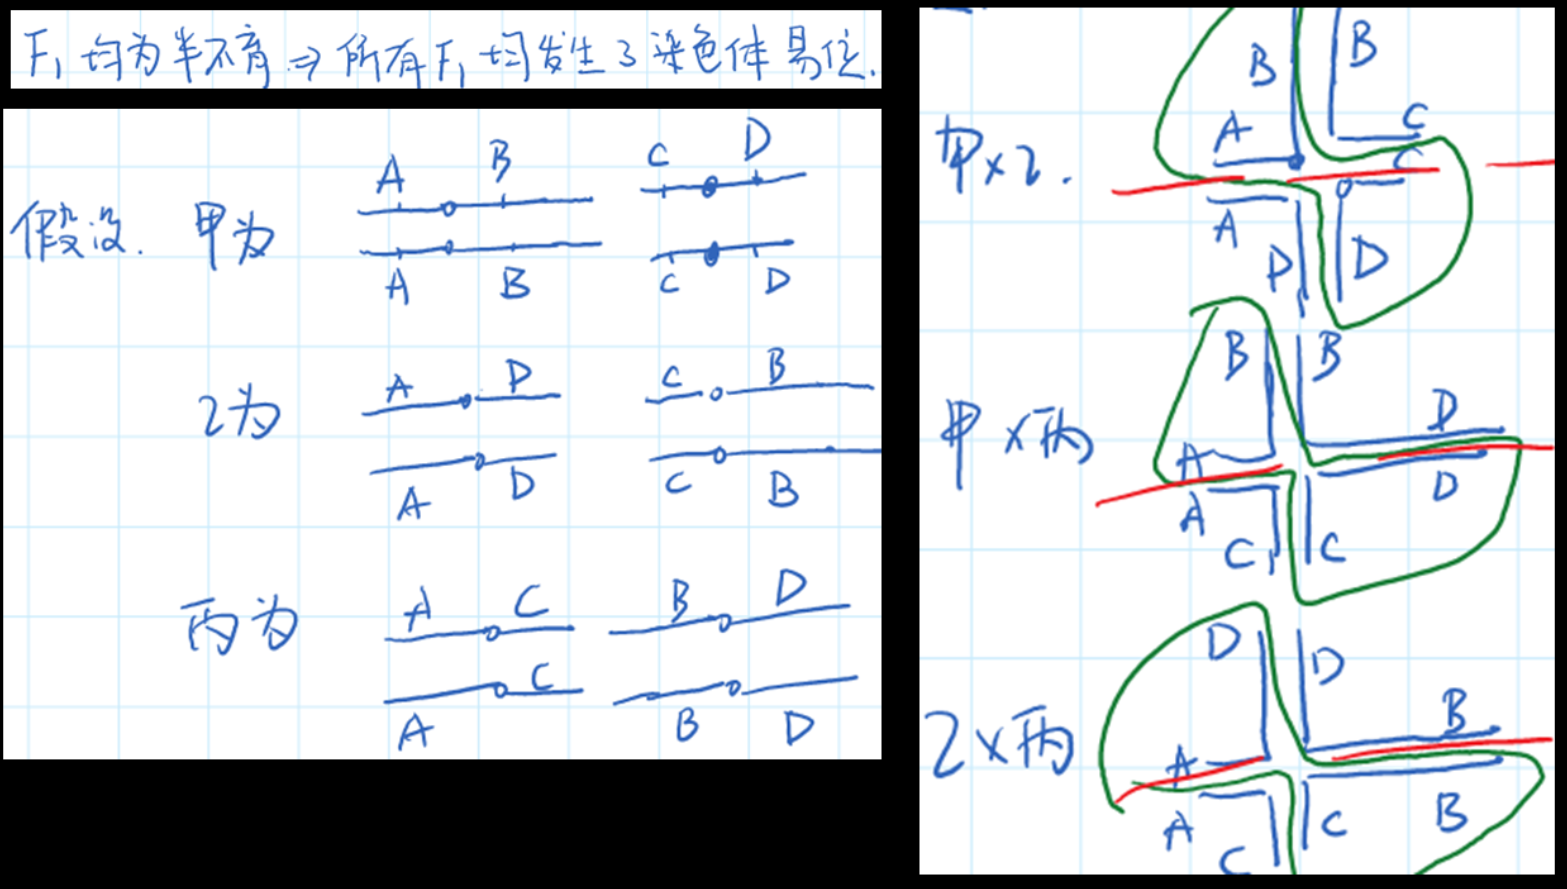 F₁均为半不育⇒所有F₁均发生了染色体易位.
假设. 甲为
A B C D
A B C D
乙为
A D C B
A D C B
丙为
A C B D
A C B D
甲×乙.
B B
A C
C
A
D D
甲×丙
B B
D
A
A D
C C
乙×丙
D D
B
A
A B
C C